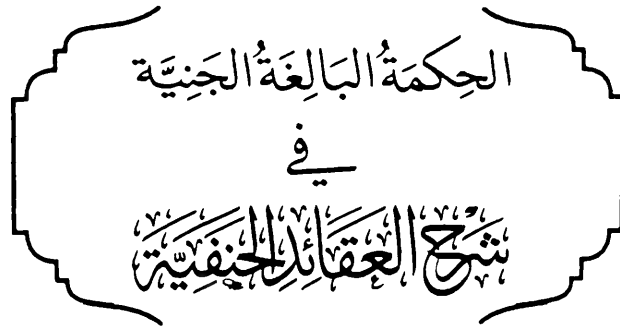 الحِكمَةُ البَالِغَةُ الجَنِيَّة
في
شَرْح العَقَائِدِ الحَنَفِيَّة